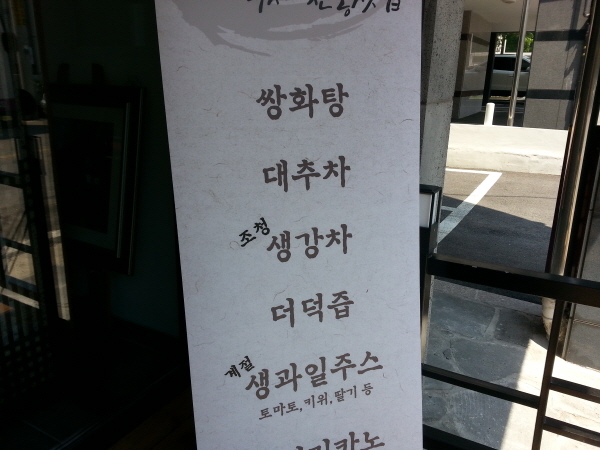 쌍화탕
대추차
조청 생강차
더덕즙
계절 생과일주스
토마토, 키위, 딸기 등